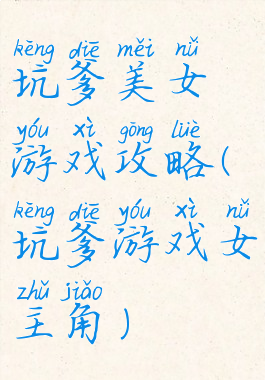 kēng diē měi nǚ
坑爹美女
yóu xì gōng lüè
游戏攻略(
kēng diē yóu xì nǚ
坑爹游戏女
zhǔ jiǎo
主角)